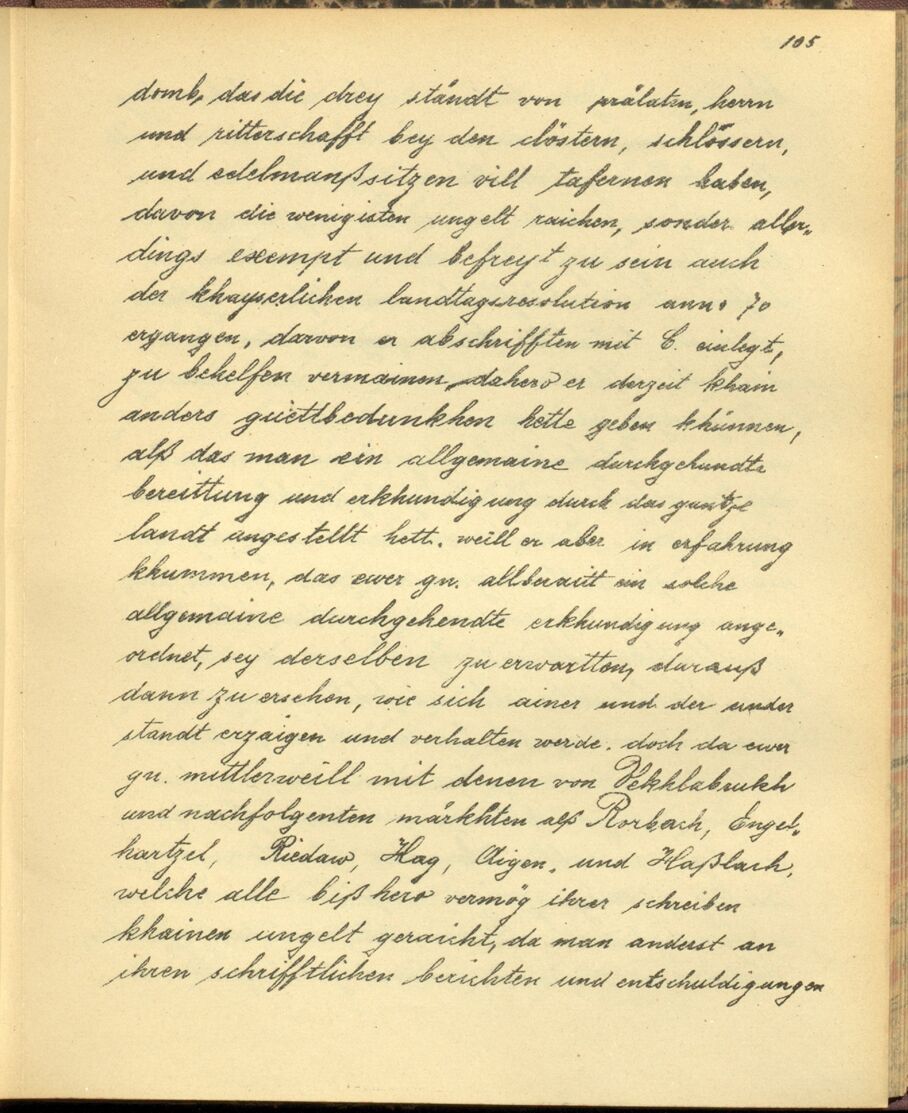 105
domb, das die drey ständt von prälatm, herrn
und ritterschafft bey den clöstern, schlössern,
und edelmanßsitzen vill tafernen haben,
davon die wenigisten ungelt raichen, sonder aller„
dings exempt und befreyt zu sein auch
der khayserlichen landtagsresolution anno 70
ergangen, darvon er abschrifften mit C. einlegt,
zu behelfen vermainen, dahero er derzeit khain
anders guettbedunkhen hette geben khünnen,
alß das man ein allgemaine durchgehundte
bereittung und erkhundigung durch das gantze
landt angestellt hett. weill er aber in erfahrung
khummen, das ewer gn. allberait ein solche
allgemaine durchgehendte erkhundigung ange„
ordnet, sey derselben zu erwartten, darauß
dann zu ersehen, wie sich ainer und der ander
standt erzaigen und verhalten werde. doch da ewer
gn. mittlerweill mit denen von Vekhlabrukh
und nachfolgenten märkhten alß Rorbach, Engel„
hartzel, Riedaw, Hag, Aigen, und Haßlach,
welche alle bißhero vermög ihrer schreiben
khainen ungelt geraicht, da man anderst an
ihren schrifftlichen berichten und entschuldigungen